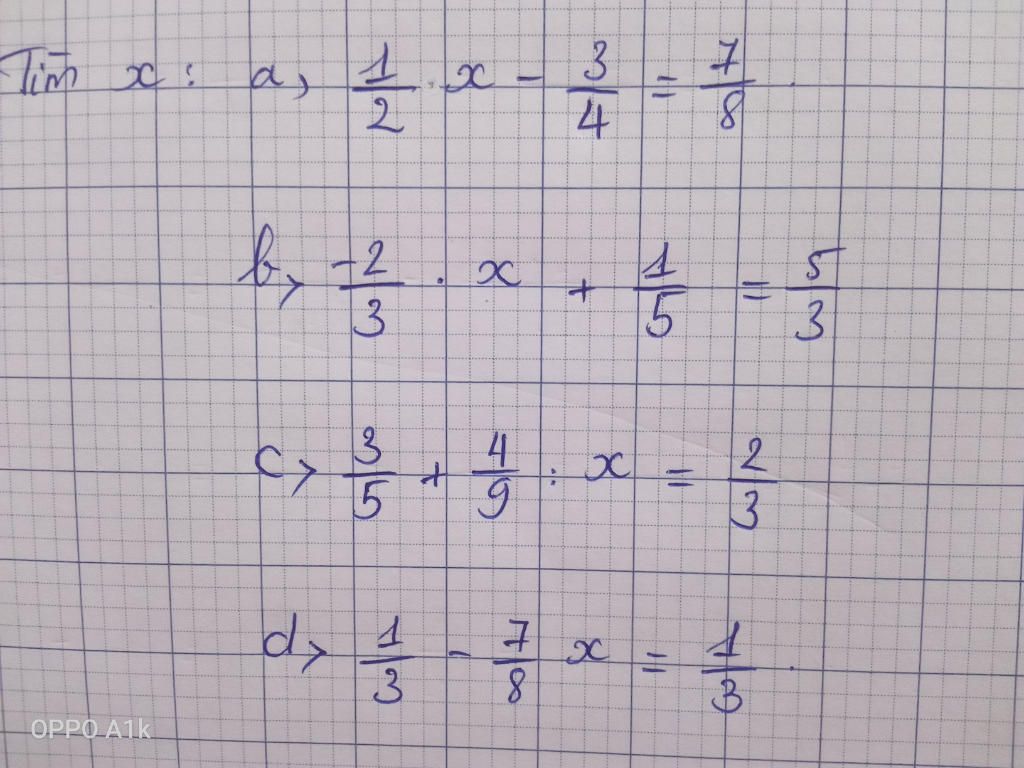 Tìm x: a, 1/2 . x - 3/4 = 7/8 .
b> -2/3 . x + 1/5 = 5/3
c> 3/5 + 4/9 : x = 2/3
d> 1/3 - 7/8 x = 1/3 .
OPPO A1k